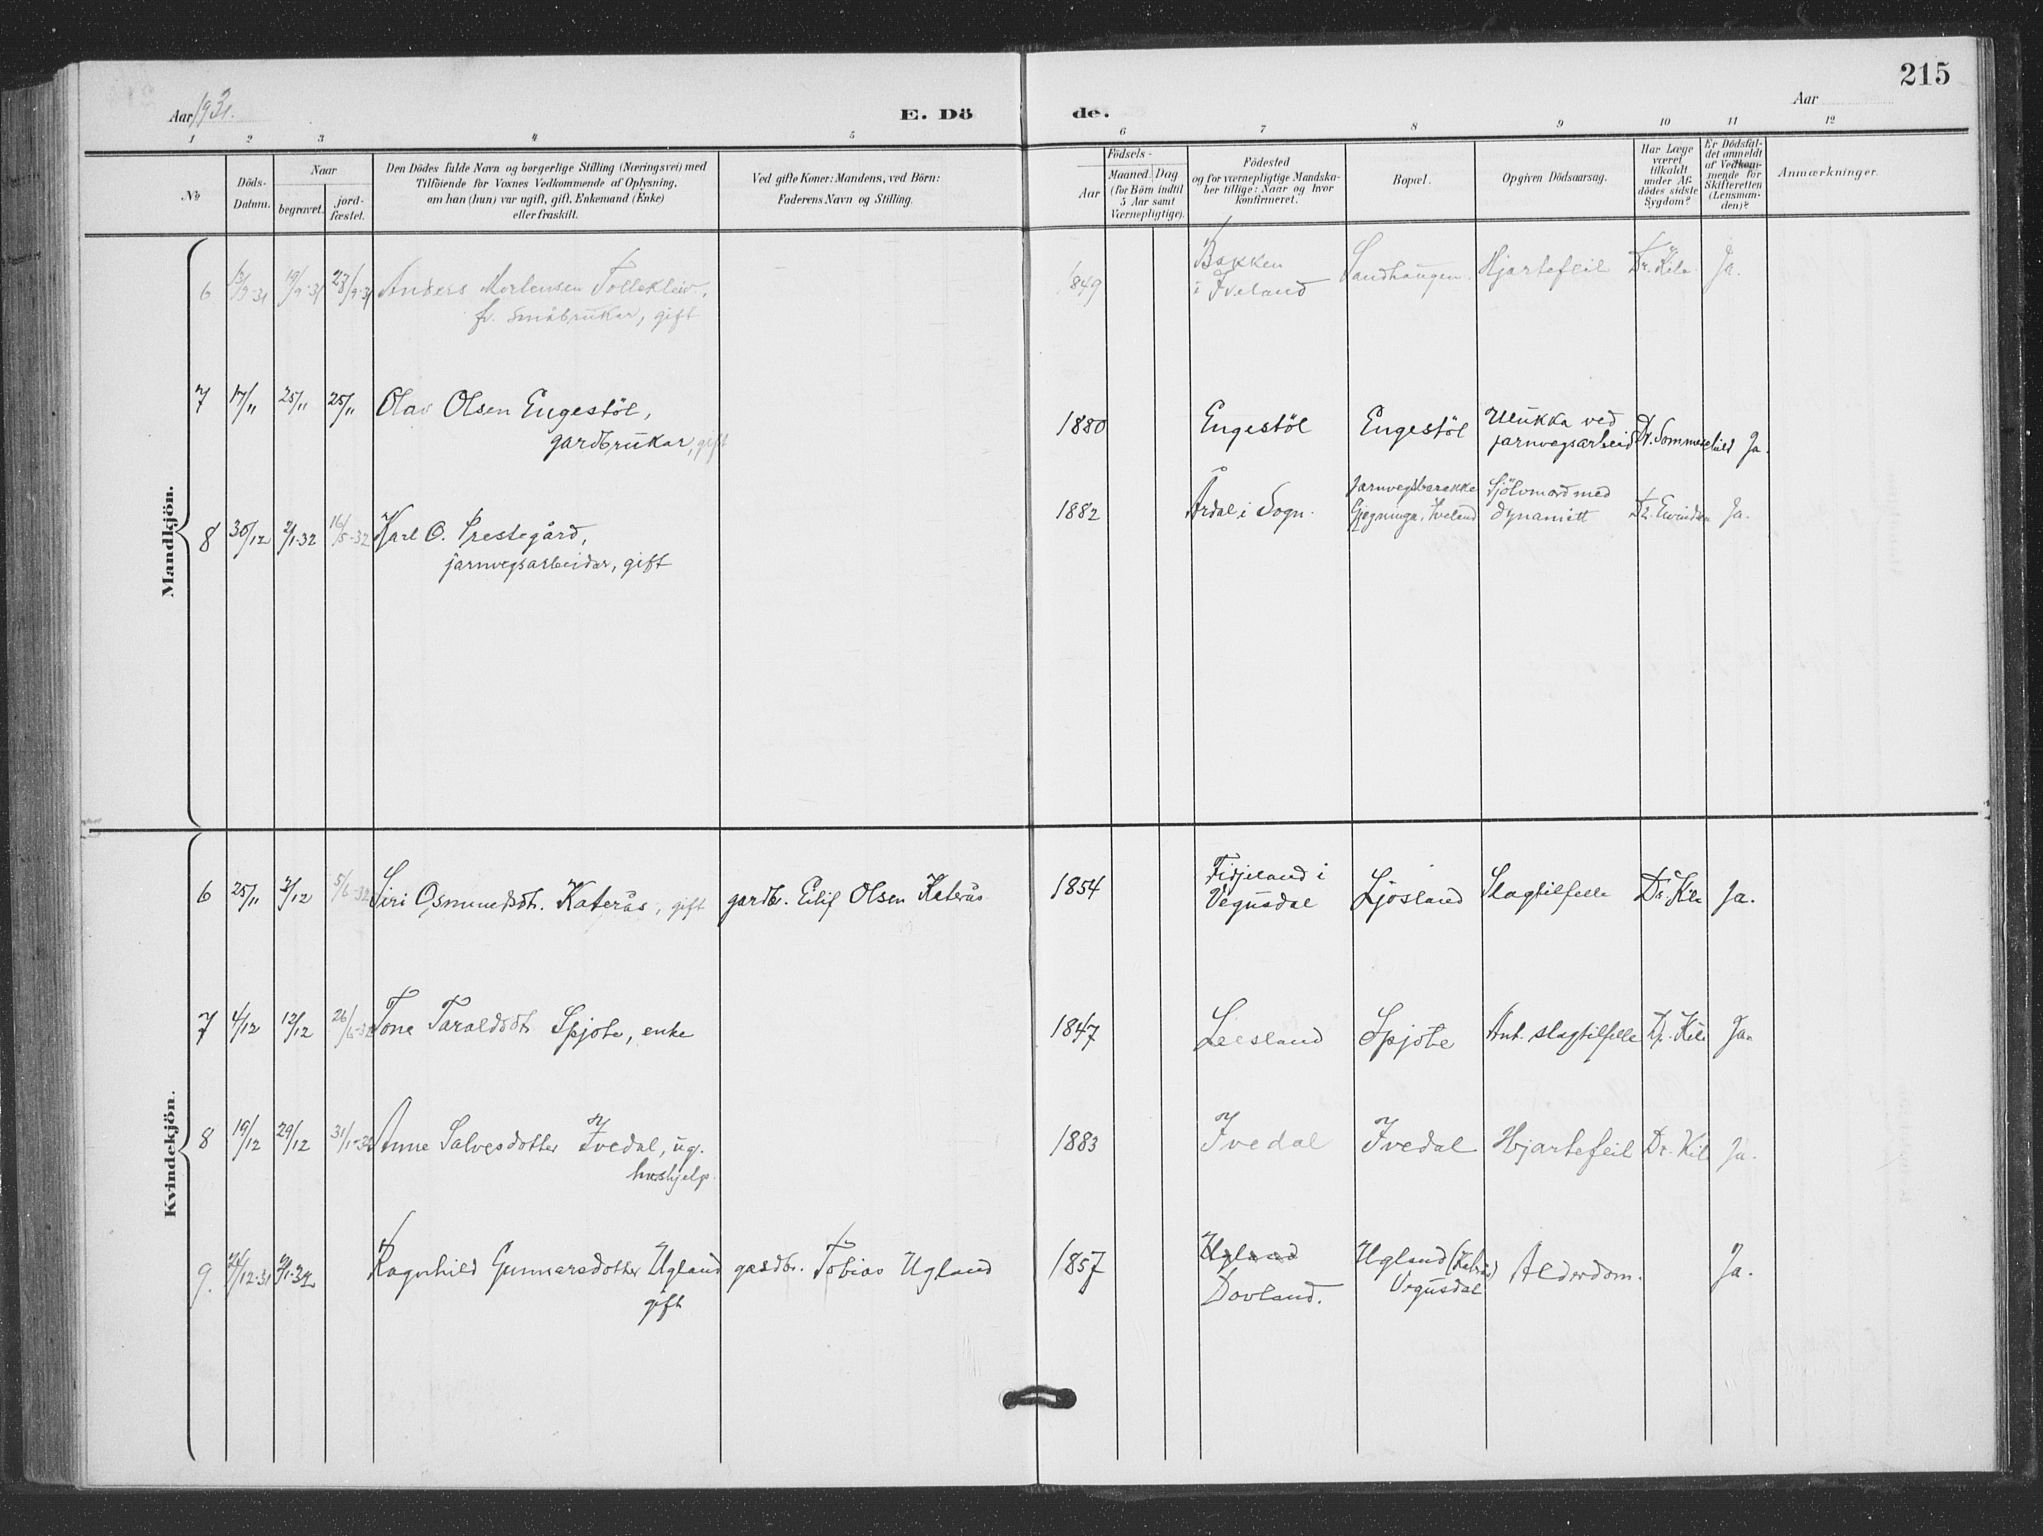 215
Aar 1931.
E. Dö
de.
Aar
1 2 3 4 5 6 7 8 9 10 11 12
No
Döds-
Datum.
Naar
begravet.
jord-
fæstet.
Den Dödes fulde Navn og borgerlige Stilling (Næringsvei) med
Tilföiende for Voxnes Vedkommende af Oplysning,
om han (hun) var ugift, gift, Enkemand (Enke)
eller fraskilt.
Ved gifte Koner: Mandens, ved Börn:
Faderens Navn og Stilling.
Födsels-
Aar
Maaned. Dag
(for Börn indtil
5 Aar samt
Værnepligtige).
Födested
og for værnepligtige Mandska-
ber tillige: Naar og hvor
konfirmeret.
Bopæl.
Opgiven Dödsaarsag.
Har Læge
været
tilkaldt
under Af-
dödes sidste
Sygdom?
Er Dödsfal-
det anmeldt
af Vedkom-
mende for
Skifteretten
(Lensman-
den)?
Anmærkninger.
Mandkjön.
6 13/9-31 19/9-31 28/9-31 Anders Mortensen Tolleklev, 1849 Bakken Sandhaugen. Hjartefeil Dr. Kile Ja.
fv. småbrukar, gift
i Iveland
7 17/11 25/11 25/11 Olav Olsen Engestöl, 1880 Engestöl Engestöl Ulukka ved Dr. Sommerschield Ja.
gardbrukar, gift
jarnvegsarbeid
8 30/12 2/1-32 16/5-32 Karl O. Prestegård, 1882 Årdal i Sogn. Jarnvegsbarakke Sjölvmord med Dr. Evindsen Ja.
jarnvegsarbeidar, gift
Iveland dynamitt
Kvindekjön.
6 25/11 2/12 5/6-32 Siri Osmundsdt. Katerås, gift gardbr. Eilif Olsen Katerås 1854 Fidjeland i Ljosland Slagtilfelle Dr. Kile Ja.
Vegusdal
7 4/12 12/12 26/6-32 Tone Taraldsdt. Spjote, enke 1847 Leesland Spjote Ant. slagtilfelle Dr. Kile Ja.
8 19/12 29/12 31/1-32 Anne Salvesdotter Ivedal, ug. 1883 Ivedal Ivedal Hjartefeil Dr. Kile Ja.
hushjelp.
9. /12-31 /1-32 Ragnhild Gunnarsdotter Ugland gardbr. Tobias Ugland 1857 Ugland Ugland Alderdom. Ja.
gift
Dovland.
Vegusdal